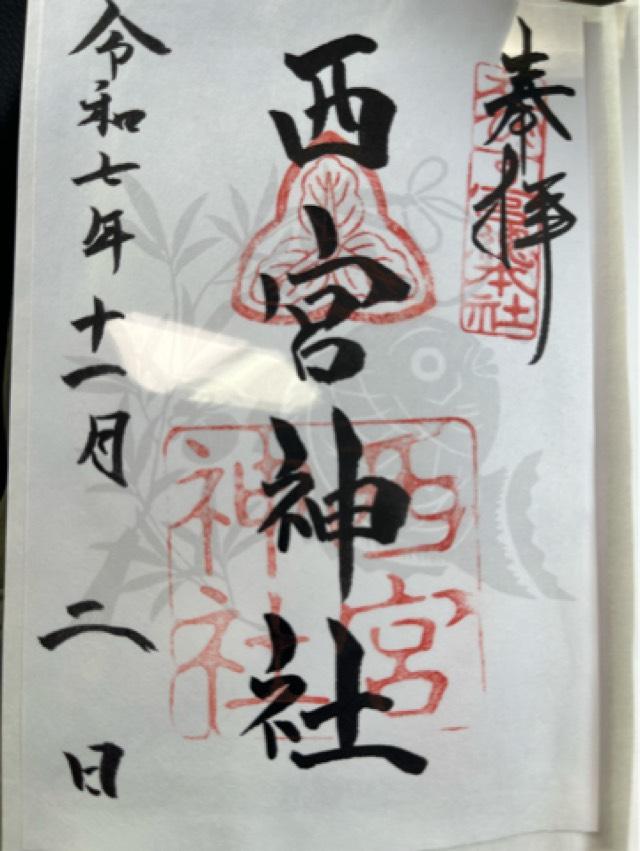 奉拝
西宮神社
令和七年十一月二日
西宮
神社